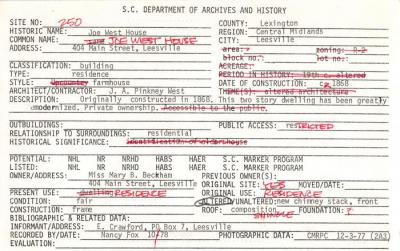 S.C. DEPARTMENT OF ARCHIVES AND HISTORY
SITE NO: 250 COUNTY: Lexington
HISTORIC NAME: Joe West House REGION: Central Midlands
COMMON NAME: JOE WEST HOUSE CITY: Leesville
ADDRESS: 404 Main Street, Leesville area: zoning: R-2
block no.: lot no.:
CLASSIFICATION: building ACREAGE:
TYPE: residence PERIOD IN HISTORY: 19th c. altered
STYLE: Upcountry farmhouse DATE OF CONSTRUCTION: c. 1868
ARCHITECT/CONTRACTOR: J. A. Pinkney West THEME(S): altered architecture
DESCRIPTION: Originally constructed in 1868. This two story dwelling has been greatly
modernized. Private ownership. Accessible to the public.
OUTBUILDINGS: PUBLIC ACCESS: resTRICTED
RELATIONSHIP TO SURROUNDINGS: residential
HISTORICAL SIGNIFICANCE: identification of older house
POTENTIAL: NH NR NRHD HABS HAER S.C. MARKER PROGRAM
LISTED: NH NR NRHD HABS HAER S.C. MARKER PROGRAM
OWNER/ADDRESS: Miss Mary B. Beckham PREVIOUS OWNER(S):
404 Main Street, Leesville ORIGINAL SITE: YES MOVED/DATE:
PRESENT USE: dwelling RESIDENCE ORIGINAL USE: RESIDENCE
CONDITION: fair ALTERED/UNALTERED: new chimney stack, front
CONSTRUCTION: frame ROOF: composition SHINGLE FOUNDATION: ?
BIBLIOGRAPHIC & RELATED DATA:
INFORMANT/ADDRESS: E. Crawford, PO Box 7, Leesville
RECORDED BY/DATE: Nancy Fox 10/78 PHOTOGRAPHIC DATA: CMRPC 12-3-77 (2A3)